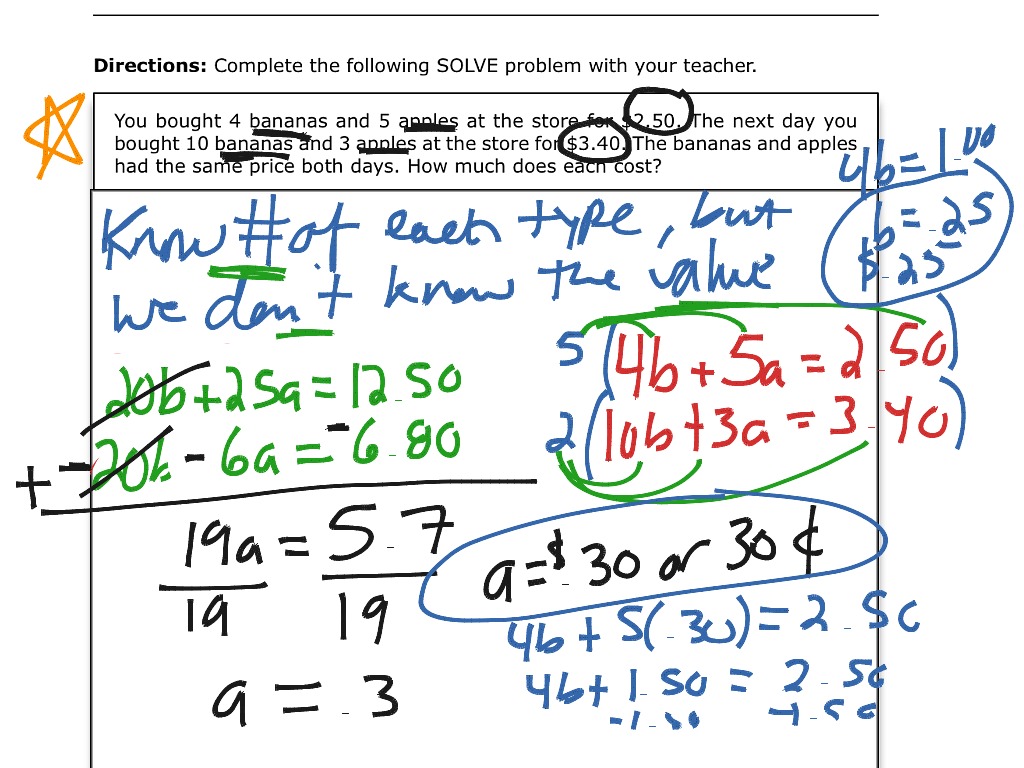 Directions: Complete the following SOLVE problem with your teacher.
You bought 4 bananas and 5 apples at the store for $2.50. The next day you
bought 10 bananas and 3 apples at the store for $3.40. The bananas and apples
had the same price both days. How much does each cost?
4b = 1.00
b = .25
$.25
Know # of each type, but
we don't know the value
5(4b + 5a = 2.50)
2(10b + 3a = 3.40)
20b + 25a = 12.50
+ -20b - 6a = -6.80
19a = 5.7
19 19
a = .3
a = $.30 or 30 ¢
4b + 5(.30) = 2.50
4b + 1.50 = 2.50
-1.50 -1.50